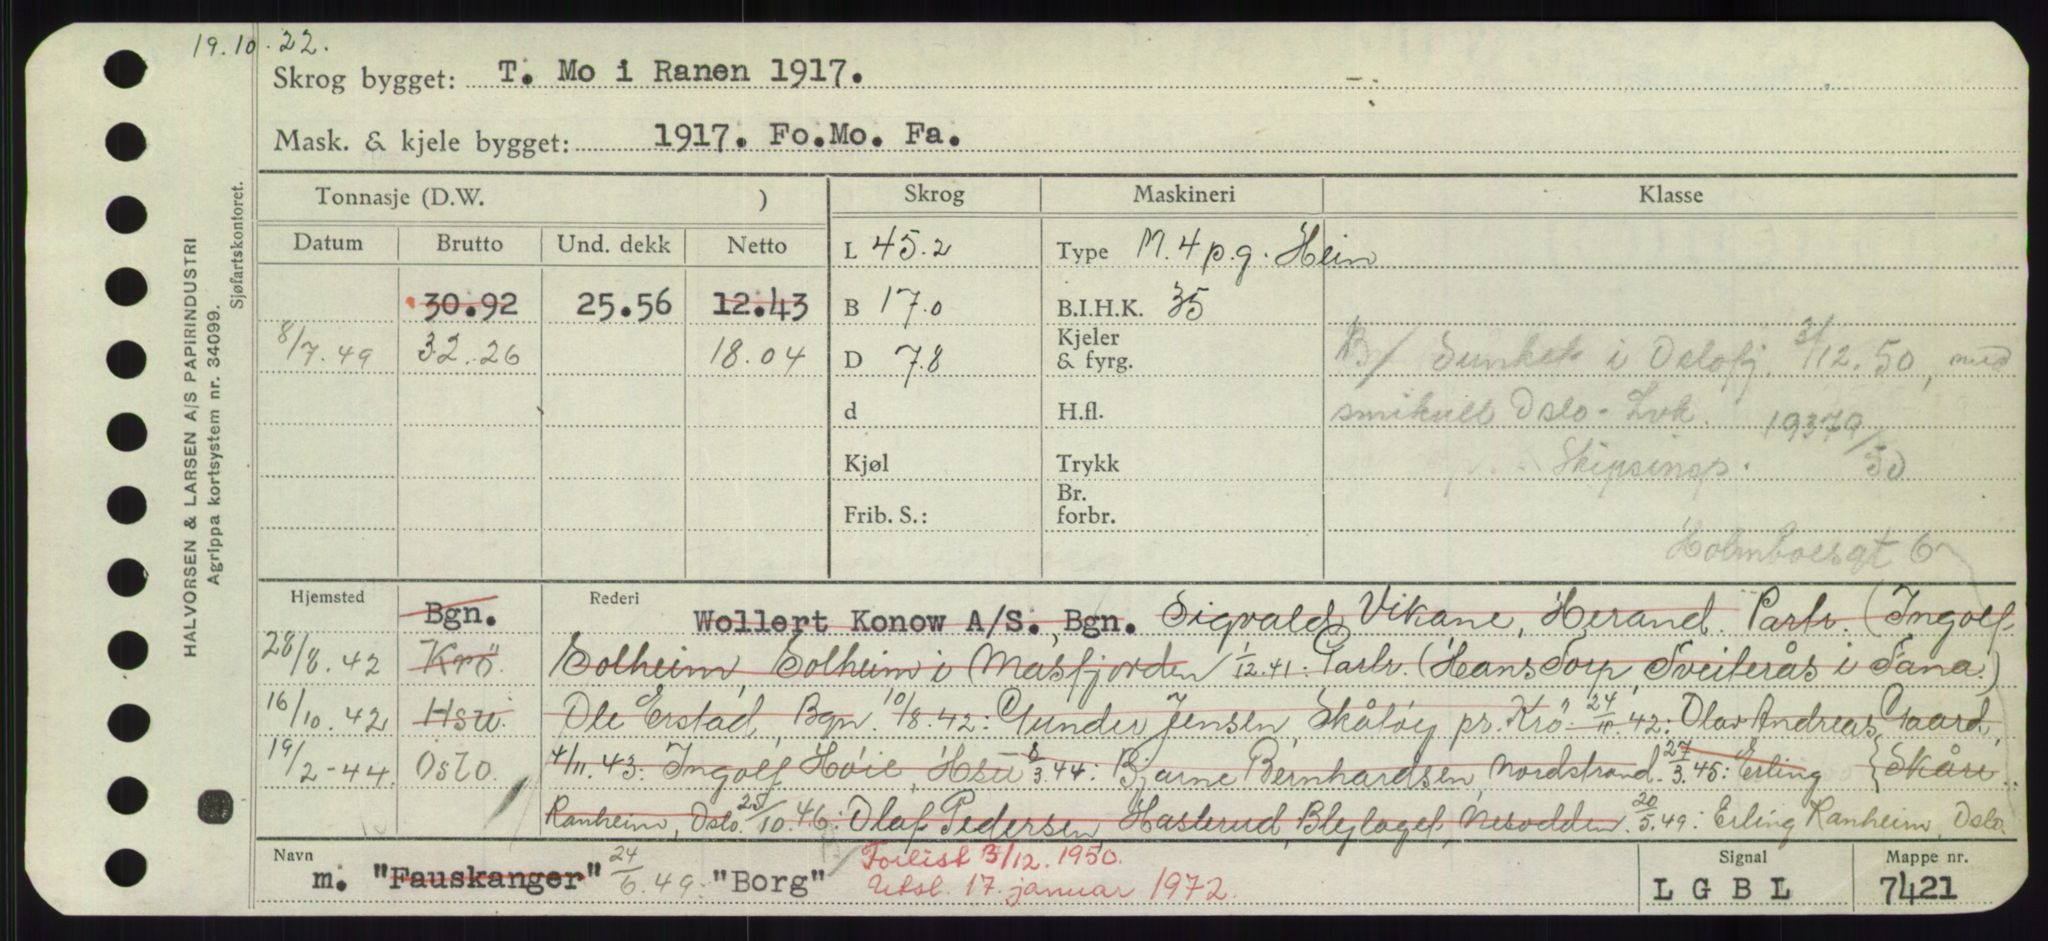 19.10.22.
Skrog bygget: T. Mo i Ranen 1917.
Mask. & kjele bygget: 1917. Fo.Mo. Fa.
Tonnasje (D.W. ) Skrog Maskineri Klasse
Datum Brutto Und. dekk Netto L 45.2 Type M. 4 p.g. Hein
30.92 25.56 12.43 B 17.0 B.I.H.K. 35
8/7.49 32.26 18.04 D 7.8 Kjeler & fyrg. Sunket i Oslofj. 3/12.50, med
d H.fl. Oslo - 19379/50
Kjøl Trykk
Frib. S.: Br. forbr.
Holmboesgt 6
Hjemsted Bgn. Rederi Wollert Konow A/S., Bgn. Sigvald Vikane, Herand. Partr. (Ingolf
28/8.42 Krö. Solheim, Solheim i Masfjorden 1/12.41: Partr. (Hans Torp, Sveiterås i Fana.)
16/10.42 Hsu. Ole Erstad, Bgn. 10/8.42: Gunder Jensen, Skåtöy pr. Krö. 24/10.42: Olav Andreas Gaard,
19/2-44. Oslo. 4/11.43: Ingolf Höie, Hsu 8/3.44: Bjarne Bernhardsen, Nordstrand. 27/3.45: Erling { Skåre.
Ranheim, Oslo. 25/10.46: Olaf Pedersen, Hasterud, Blylaget, Nesodden. 20/5.49: Erling Ranheim, Oslo.
Navn m. "Fauskanger" 24/6.49. "Borg" Forlist 3/12.1950. Signal Mappe nr.
17. januar 1972. L G B L 7421
HALVORSEN & LARSEN A/S PAPIRINDUSTRI
Agrippa kortsystem nr. 34099.
Sjøfartskontoret.